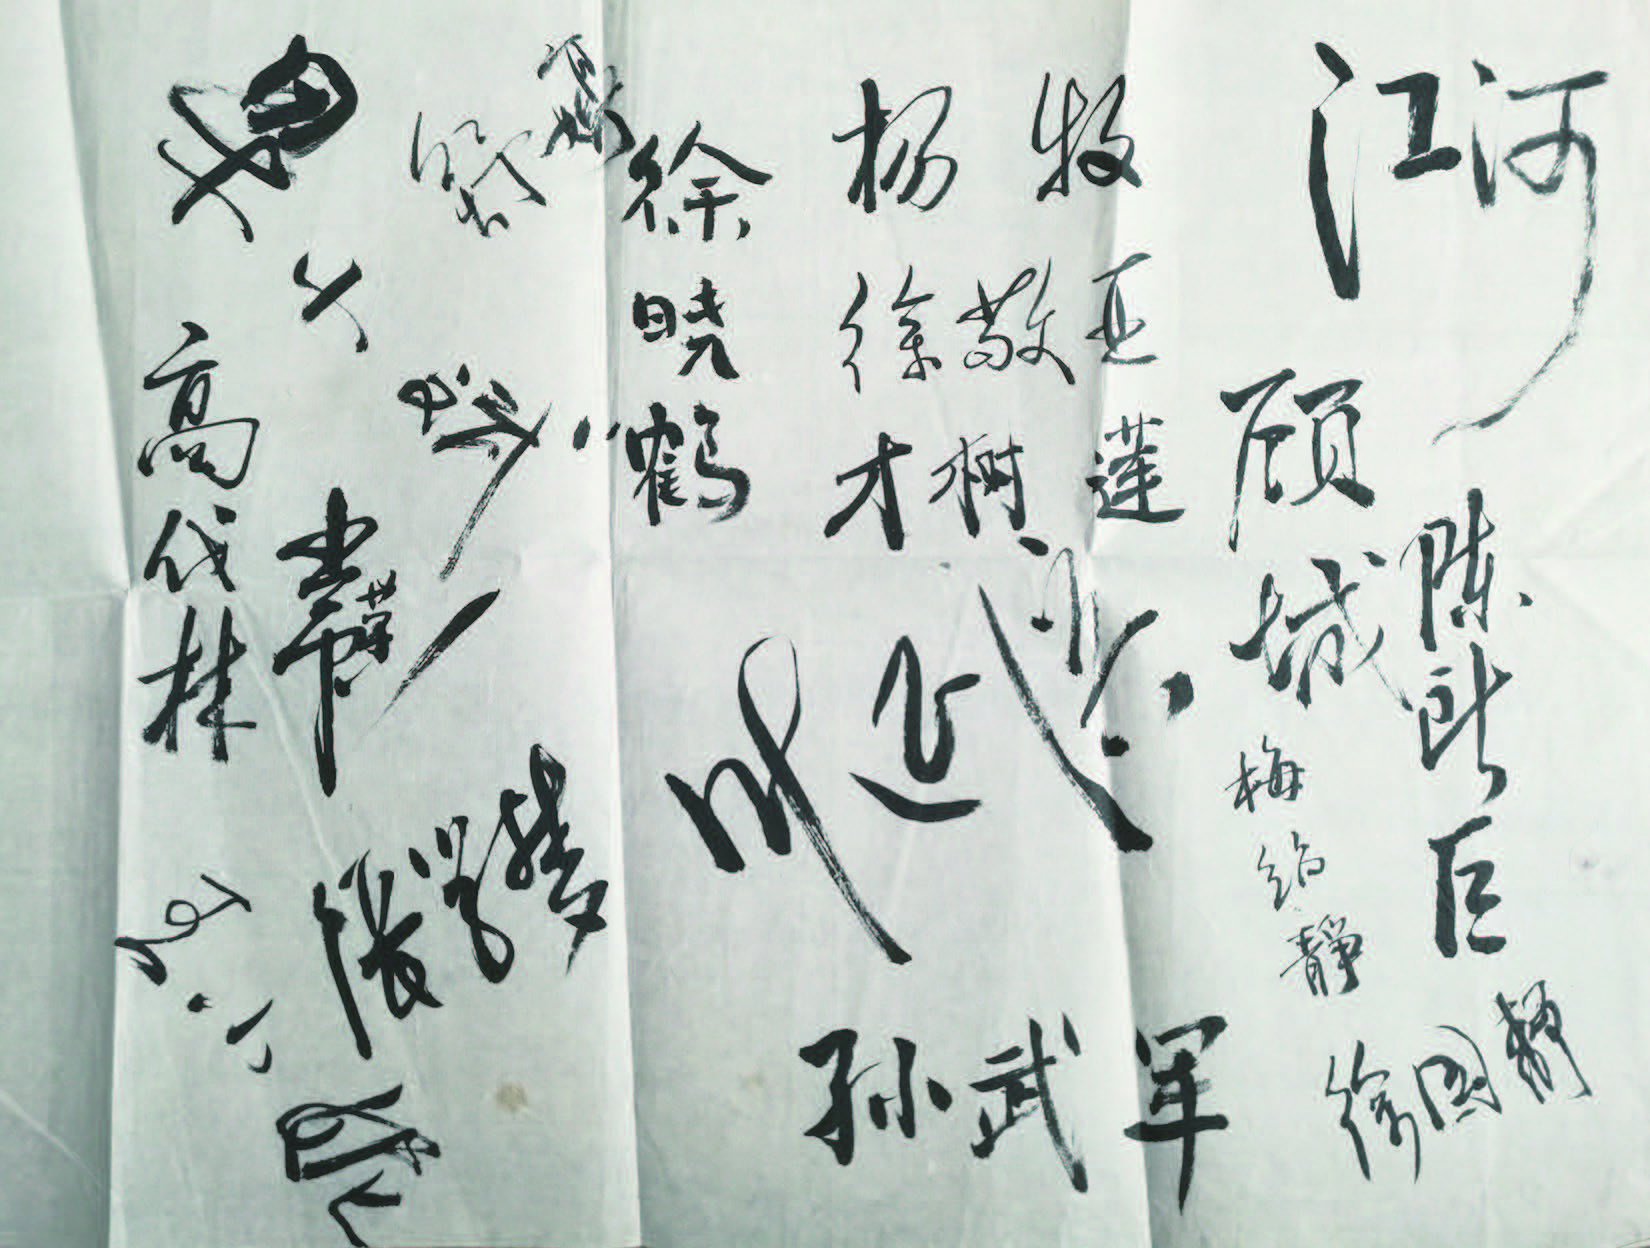 江河
顾城
陈所巨
梅绍静
徐国静
杨牧
徐敬亚
才树莲
孙武军
徐晓鹤
叶延滨
舒婷
张学梦
常荣
高伐林